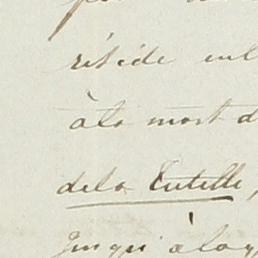 réside
à la mort d
de la Tutelle,
Jusqu'à la